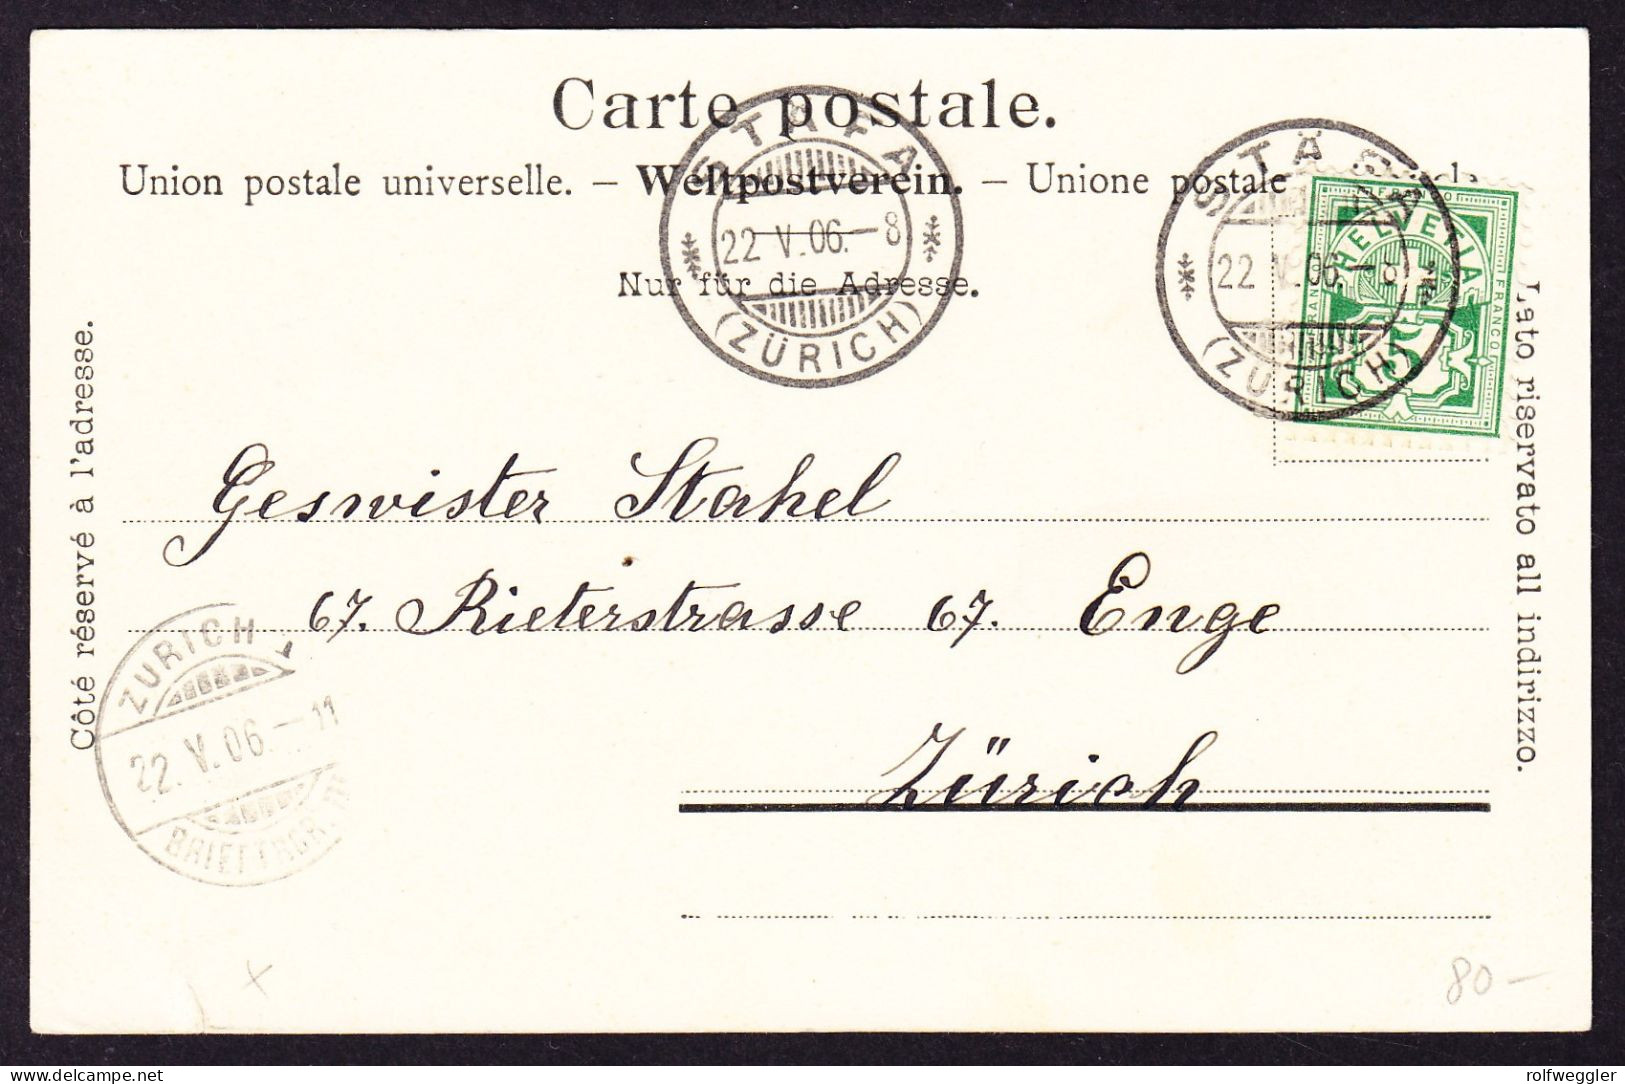 Carte postale.
Union postale universelle. – Weltpostverein. – Unione postale
Nur für die Adresse.
STÄFA
22 V. 06. – 8
(ZÜRICH)
STÄFA
22 V. 06. – 8
(ZÜRICH)
FRANCO
HELVETIA
FRANCO
5
Côté réservé à l'adresse.
Lato riservato all indirizzo.
Geswister Stahel
67. Rieterstrasse 67. Enge
Zürich
ZÜRICH 1
22. V. 06. – 11
80 –
delcampe.net
rolfweggler